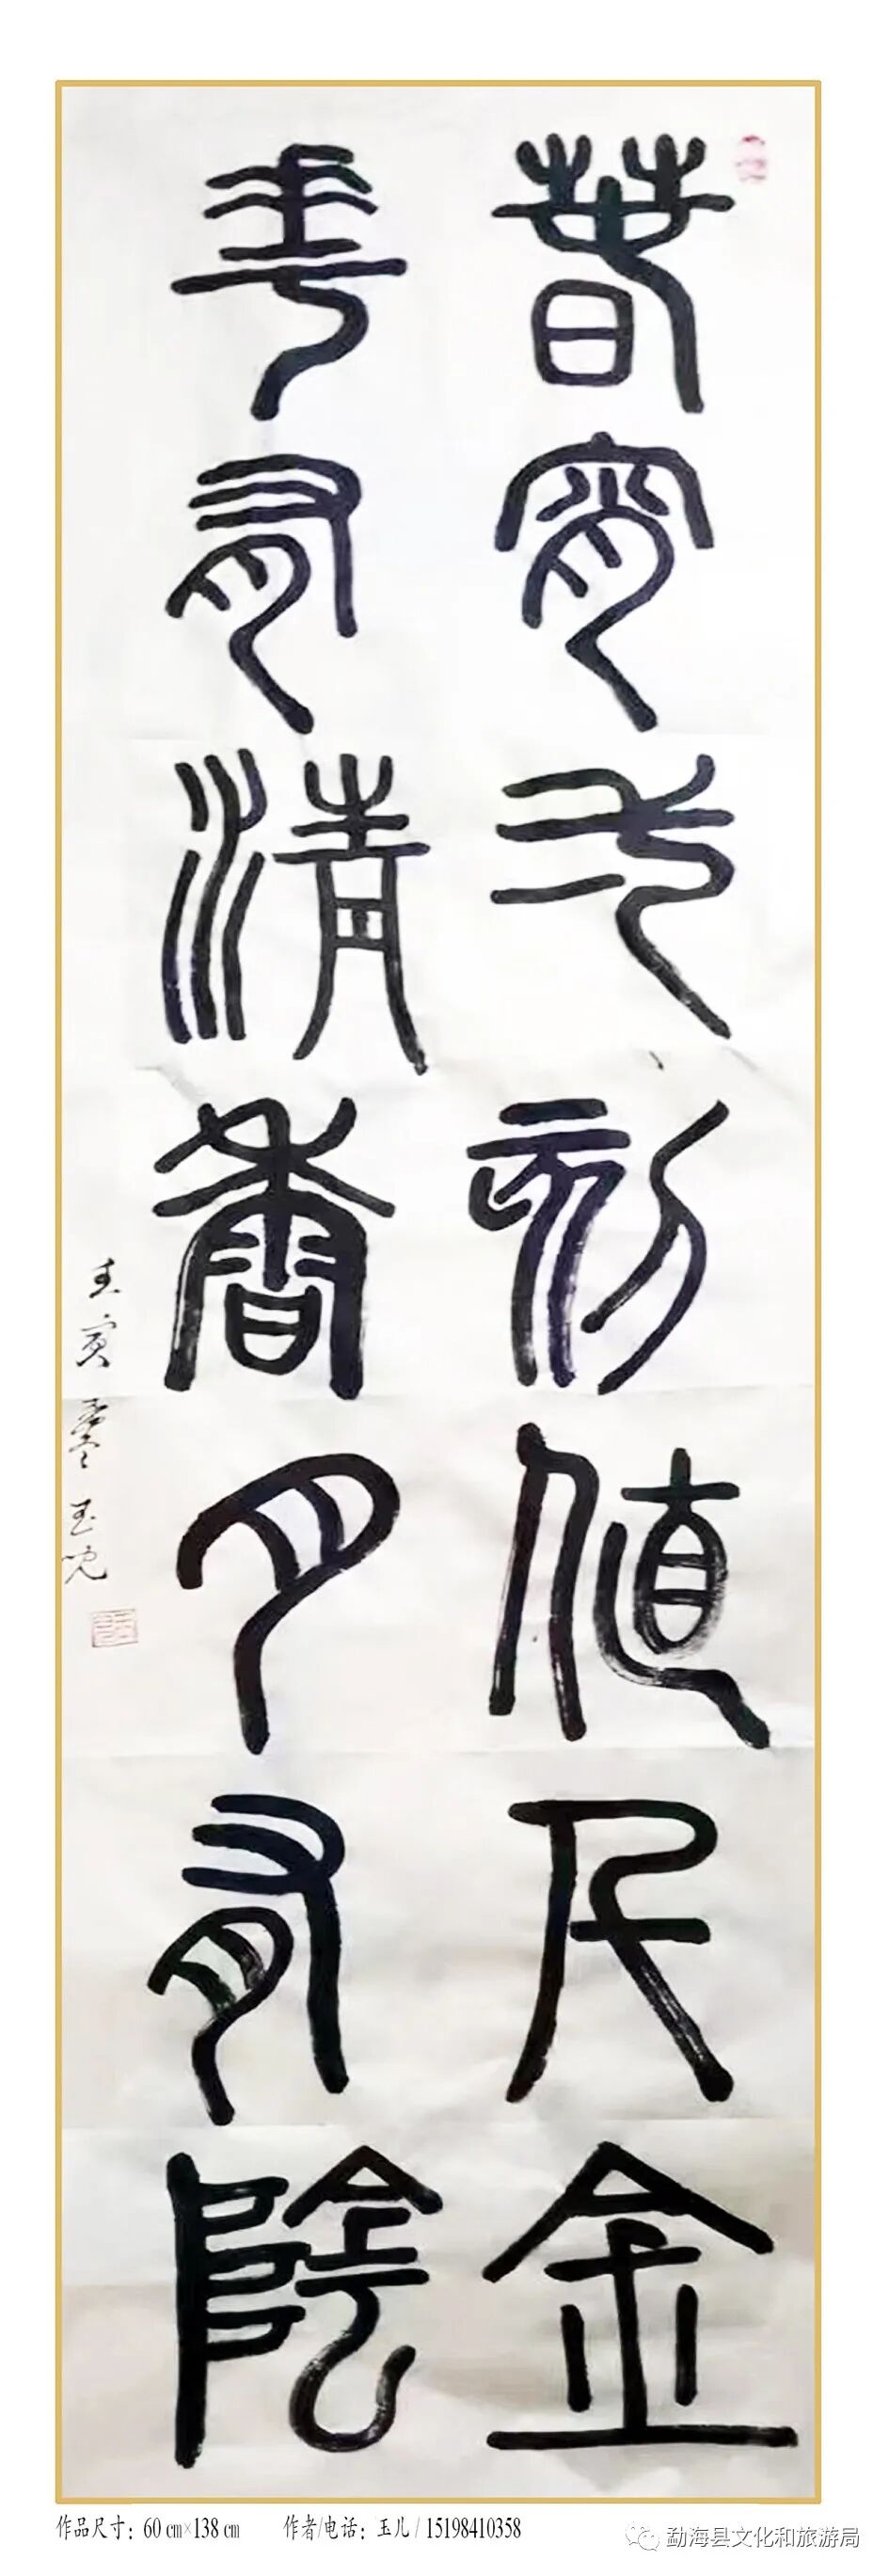 春宵弌刻值千金
華有清香月有陰
壬寅 玉児
作品尺寸：60 cm×138 cm 作者/电话：玉儿 / 15198410358
勐海县文化和旅游局